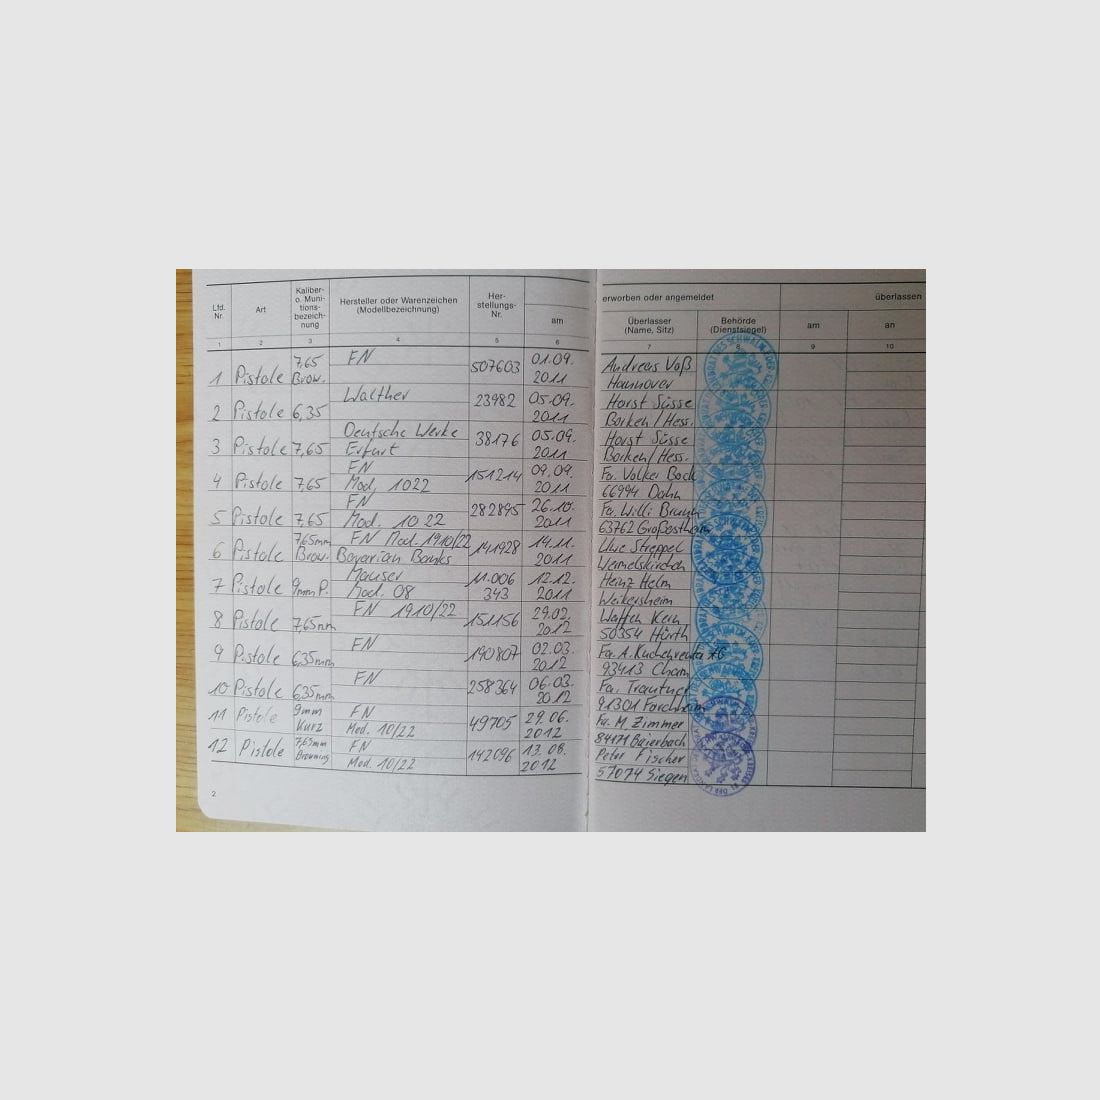 Lfd. Nr. Art Kaliber- o. Muni- tions- bezeich- nung Hersteller oder Warenzeichen (Modellbezeichnung) Her- stellungs- Nr. am
erworben oder angemeldet überlassen
Überlasser (Name, Sitz) Behörde (Dienstsiegel) am an
1 2 3 4 5 6 7 8 9 10
7,65 FN 01.09. Andreas Voß
1 Pistole Brow. 507603 2011 Hannover
Walther 05.09. Horst Süsse
2 Pistole 6,35 23982 2011 Borken/Hess.
Deutsche Werke 05.09. Horst Süsse
3 Pistole 7,65 Erfurt 38176 2011 Borken/Hess.
FN 09.09. Fa. Volker Bock
4 Pistole 7,65 Mod. 1022 151214 2011 66994 Dahn
FN 26.10. Fa. Willi Braun
5 Pistole 7,65 Mod. 10 22 282895 2011 63762 Großostheim
7,65mm FN Mod. 1910/22 14.11. Uwe Streppel
6 Pistole Brow. 141928 2011 Wermelskirchen
Mauser 11.006 12.12. Heinz Helm
7 Pistole 9mm P. Mod. 08 343 2011 Weikersheim
FN 1910/22 29.02. Waffen Kern
8 Pistole 7,65mm 151156 2012 50354 Hürth
FN 02.03. Fa. A. AG
9 Pistole 6,35mm 190807 2012 93413 Cham
FN 06.03. Fa. Trautner
10 Pistole 6,35mm 258364 2012 91301 Forchheim
9mm FN 29.06. Fa. M. Zimmer
11 Pistole Kurz Mod. 10/22 49705 2012 84171 Baierbach
7,65mm FN 13.08. Peter Fischer
12 Pistole Browning Mod. 10/22 142096 2012 57074 Siegen
2